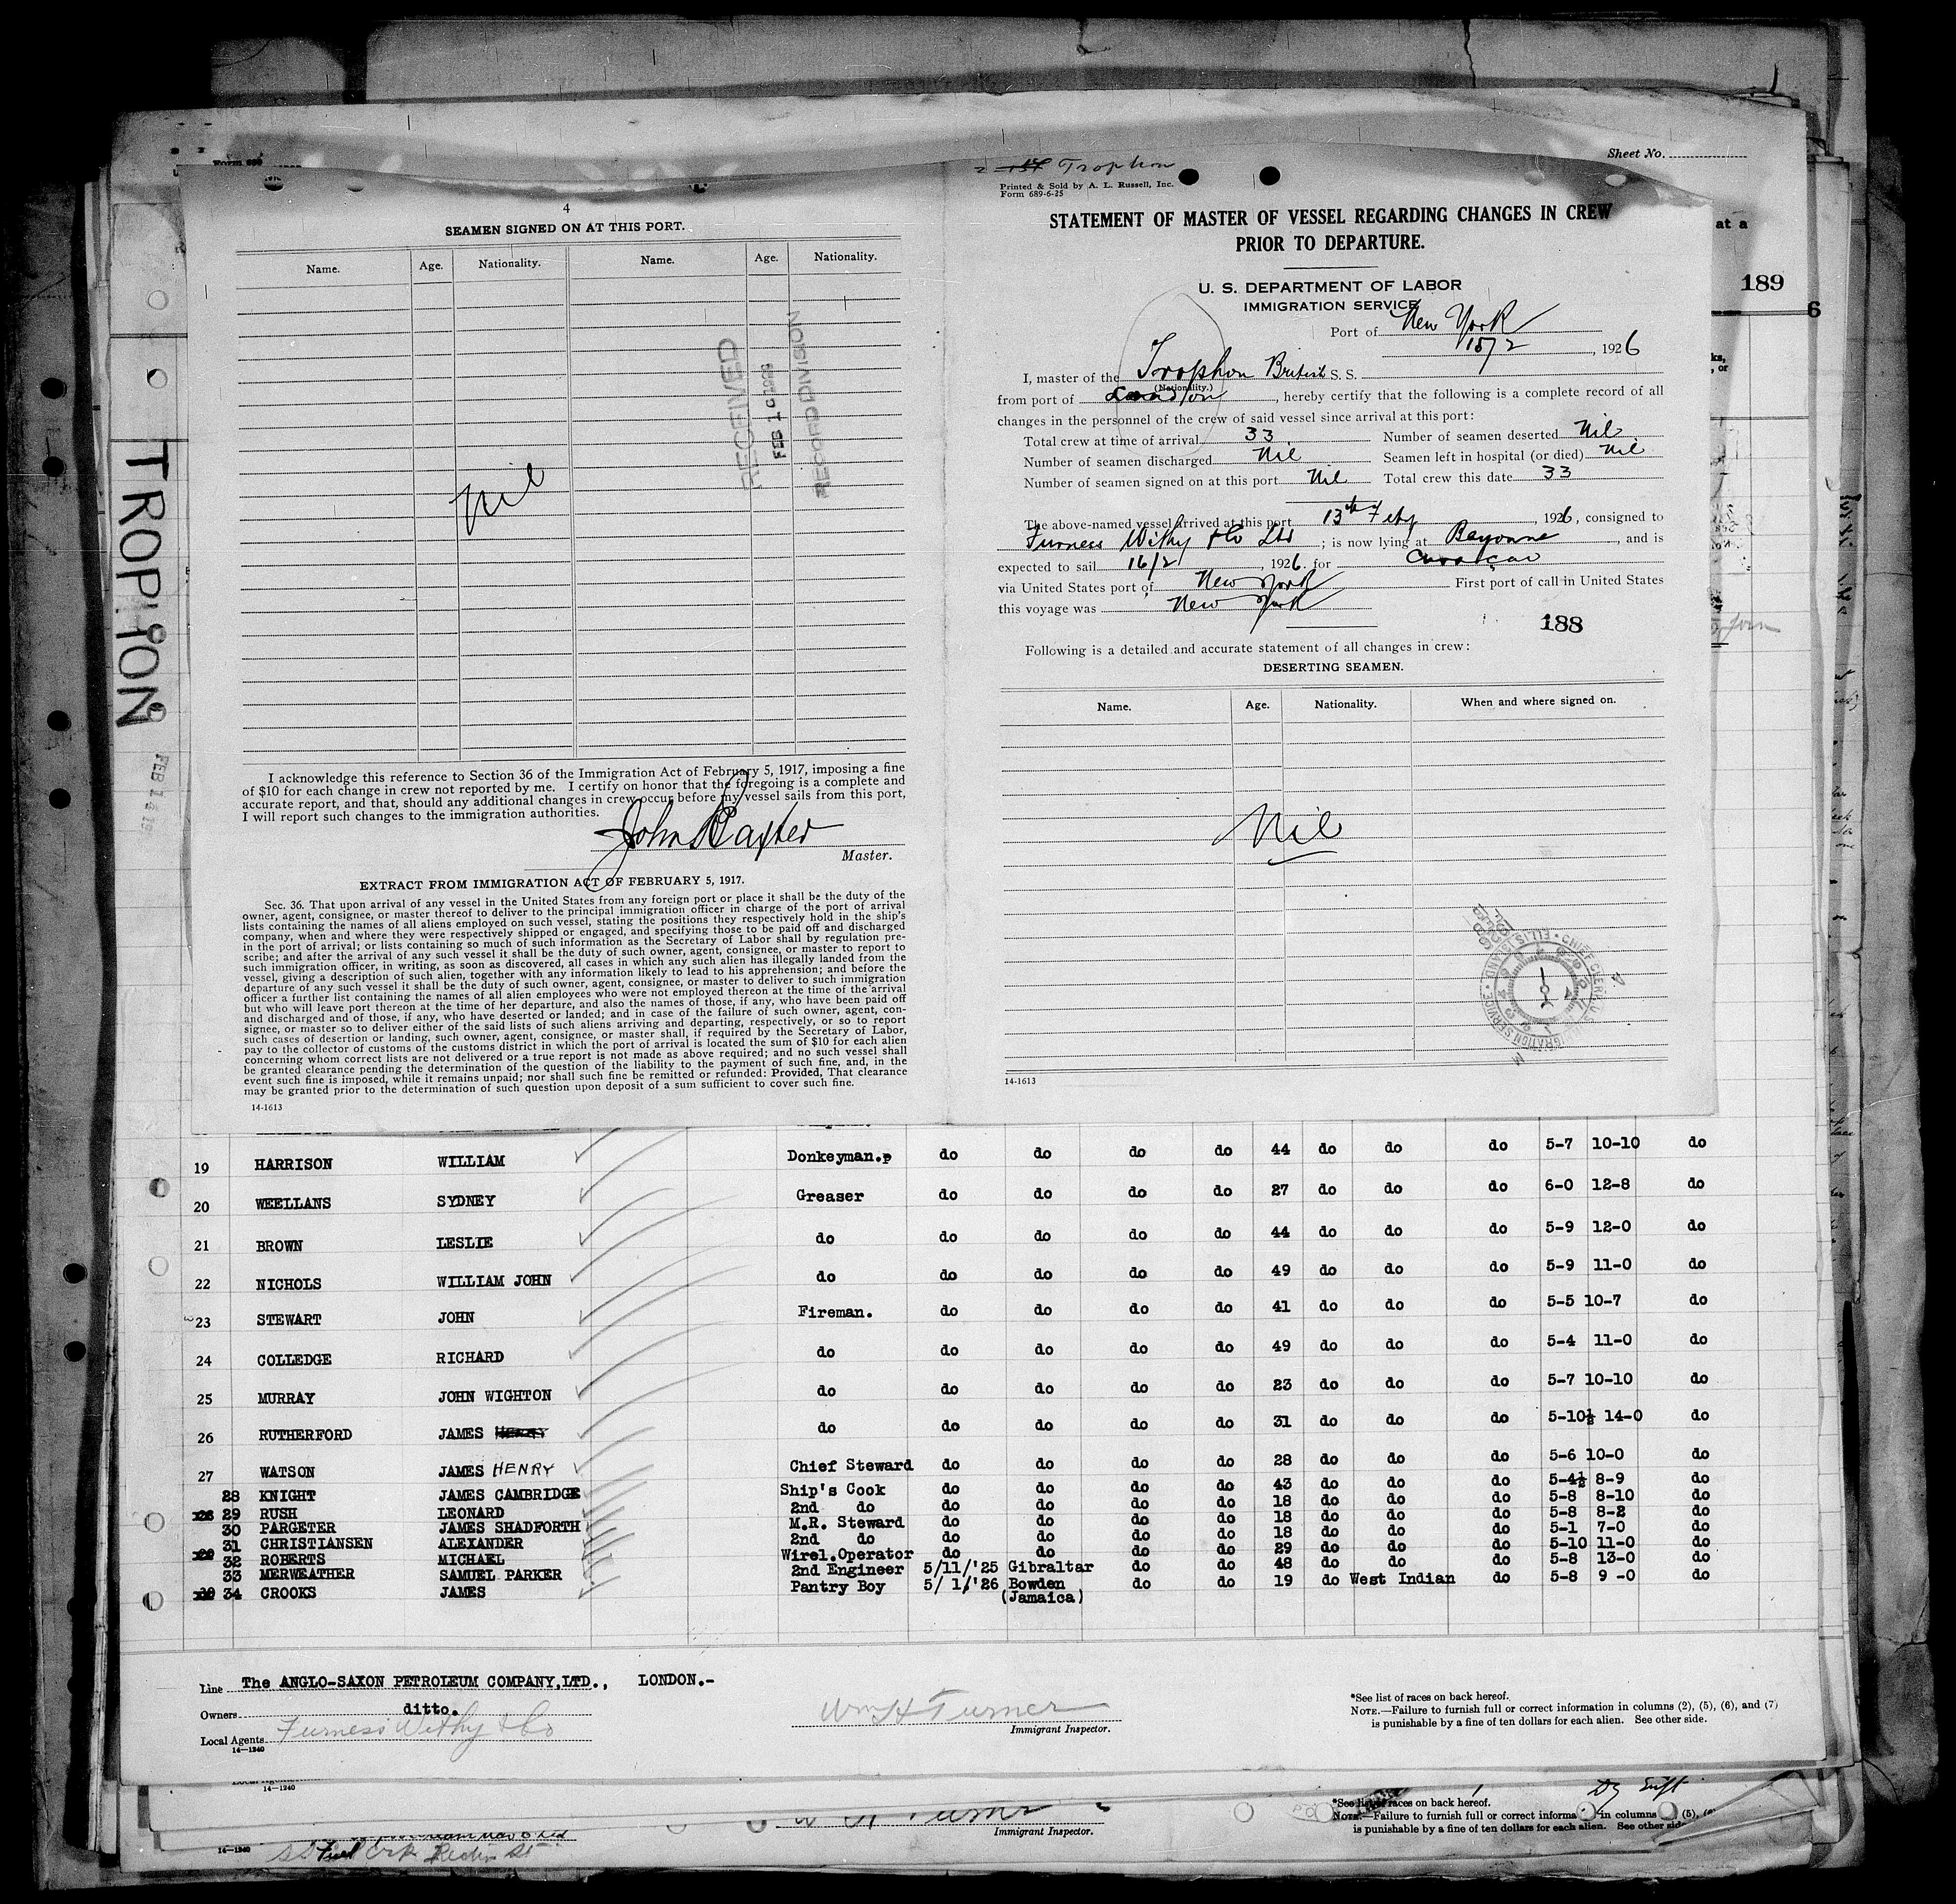 Sheet No.
2 1st Trophon
Printed & Sold by A. L. Russell, Inc.
Form 689-6-25
4
SEAMEN SIGNED ON AT THIS PORT.
Name. Age. Nationality. Name. Age. Nationality.
Nil
RECEIVED
FEB 16 1926
RECORD DIVISION
I acknowledge this reference to Section 36 of the Immigration Act of February 5, 1917, imposing a fine
of $10 for each change in crew not reported by me. I certify on honor that the foregoing is a complete and
accurate report, and that, should any additional changes in crew occur before my vessel sails from this port,
I will report such changes to the immigration authorities.
John Baxter
Master.
EXTRACT FROM IMMIGRATION ACT OF FEBRUARY 5, 1917.
Sec. 36. That upon arrival of any vessel in the United States from any foreign port or place it shall be the duty of the
owner, agent, consignee, or master thereof to deliver to the principal immigration officer in charge of the port of arrival
lists containing the names of all aliens employed on such vessel, stating the positions they respectively hold in the ship's
company, when and where they were respectively shipped or engaged, and specifying those to be paid off and discharged
in the port of arrival; or lists containing so much of such information as the Secretary of Labor shall by regulation pre-
scribe; and after the arrival of any such vessel it shall be the duty of such owner, agent, consignee, or master to report to
such immigration officer, in writing, as soon as discovered, all cases in which any such alien has illegally landed from the
vessel, giving a description of such alien, together with any information likely to lead to his apprehension; and before the
departure of any such vessel it shall be the duty of such owner, agent, consignee, or master to deliver to such immigration
officer a further list containing the names of all alien employees who were not employed thereon at the time of the arrival
but who will leave port thereon at the time of her departure, and also the names of those, if any, who have been paid off
and discharged and of those, if any, who have deserted or landed; and in case of the failure of such owner, agent, con-
signee, or master so to deliver either of the said lists of such aliens arriving and departing, respectively, or so to report
such cases of desertion or landing, such owner, agent, consignee, or master shall, if required by the Secretary of Labor,
pay to the collector of customs of the customs district in which the port of arrival is located the sum of $10 for each alien
concerning whom correct lists are not delivered or a true report is not made as above required; and no such vessel shall
be granted clearance pending the determination of the question of the liability to the payment of such fine, and, in the
event such fine is imposed, while it remains unpaid; nor shall such fine be remitted or refunded: Provided, That clearance
may be granted prior to the determination of such question upon deposit of a sum sufficient to cover such fine.
14-1613
STATEMENT OF MASTER OF VESSEL REGARDING CHANGES IN CREW
PRIOR TO DEPARTURE.
U. S. DEPARTMENT OF LABOR
IMMIGRATION SERVICE
Port of New York
15/2, 1926
I, master of the Trophon British S. S.
(Nationality.)
from port of London, hereby certify that the following is a complete record of all
changes in the personnel of the crew of said vessel since arrival at this port:
Total crew at time of arrival 33 Number of seamen deserted Nil
Number of seamen discharged Nil Seamen left in hospital (or died) Nil
Number of seamen signed on at this port Nil Total crew this date 33
The above-named vessel arrived at this port 13th Feby, 1926, consigned to
Furness Withy & Co Ltd; is now lying at Bayonne, and is
expected to sail 16/2, 1926 for Curaçao
via United States port of New York First port of call in United States
this voyage was New York
188
Following is a detailed and accurate statement of all changes in crew:
DESERTING SEAMEN.
Name. Age. Nationality. When and where signed on.
Nil
14-1613
at a
189
6
TROPHON
FEB 14
19 HARRISON WILLIAM Donkeyman. do do do do 44 do do do 5-7 10-10 do
20 WEELLANS SYDNEY Greaser do do do do 27 do do do 6-0 12-8 do
21 BROWN LESLIE do do do do do 44 do do do 5-9 12-0 do
22 NICHOLS WILLIAM JOHN do do do do do 49 do do do 5-9 11-0 do
23 STEWART JOHN Fireman. do do do do 41 do do do 5-5 10-7 do
24 COLLEDGE RICHARD do do do do do 49 do do do 5-4 11-0 do
25 MURRAY JOHN WIGHTON do do do do do 23 do do do 5-7 10-10 do
26 RUTHERFORD JAMES do do do do do 31 do do do 5-10½ 14-0 do
27 WATSON JAMES HENRY Chief Steward do do do do 28 do do do 5-6 10-0 do
28 KNIGHT JAMES CAMBRIDGE Ship's Cook do do do do 43 do do do 5-4½ 8-9 do
29 RUSH LEONARD 2nd do do do do do 18 do do do 5-8 8-10 do
30 PARGETER JAMES SHADFORTH M.R. Steward do do do do 18 do do do 5-8 8-2 do
31 CHRISTIANSEN ALEXANDER 2nd do do do do do 18 do do do 5-1 7-0 do
32 ROBERTS MICHAEL Wirel.Operator do do do do 29 do do do 5-10 11-0 do
33 MERWEATHER SAMUEL PARKER 2nd Engineer 5/11/'25 Gibraltar do do 48 do do do 5-8 13-0 do
34 CROOKS JAMES Pantry Boy 5/ 1/'26 Bowden do do 19 do West Indian do 5-8 9 -0 do
(Jamaica)
Line The ANGLO-SAXON PETROLEUM COMPANY,LTD., LONDON.-
Owners ditto.
Local Agents Furness Withy & Co
14-1240
Wm H Turner
Immigrant Inspector.
*See list of races on back hereof.
NOTE.—Failure to furnish full or correct information in columns (2), (5), (6), and (7)
is punishable by a fine of ten dollars for each alien. See other side.
14-1240
Immigrant Inspector.
*See list of races on back hereof.
NOTE.—Failure to furnish full or correct informa in columns (5),
is punishable by a fine of ten dollars for each alien. See other side
14-1240